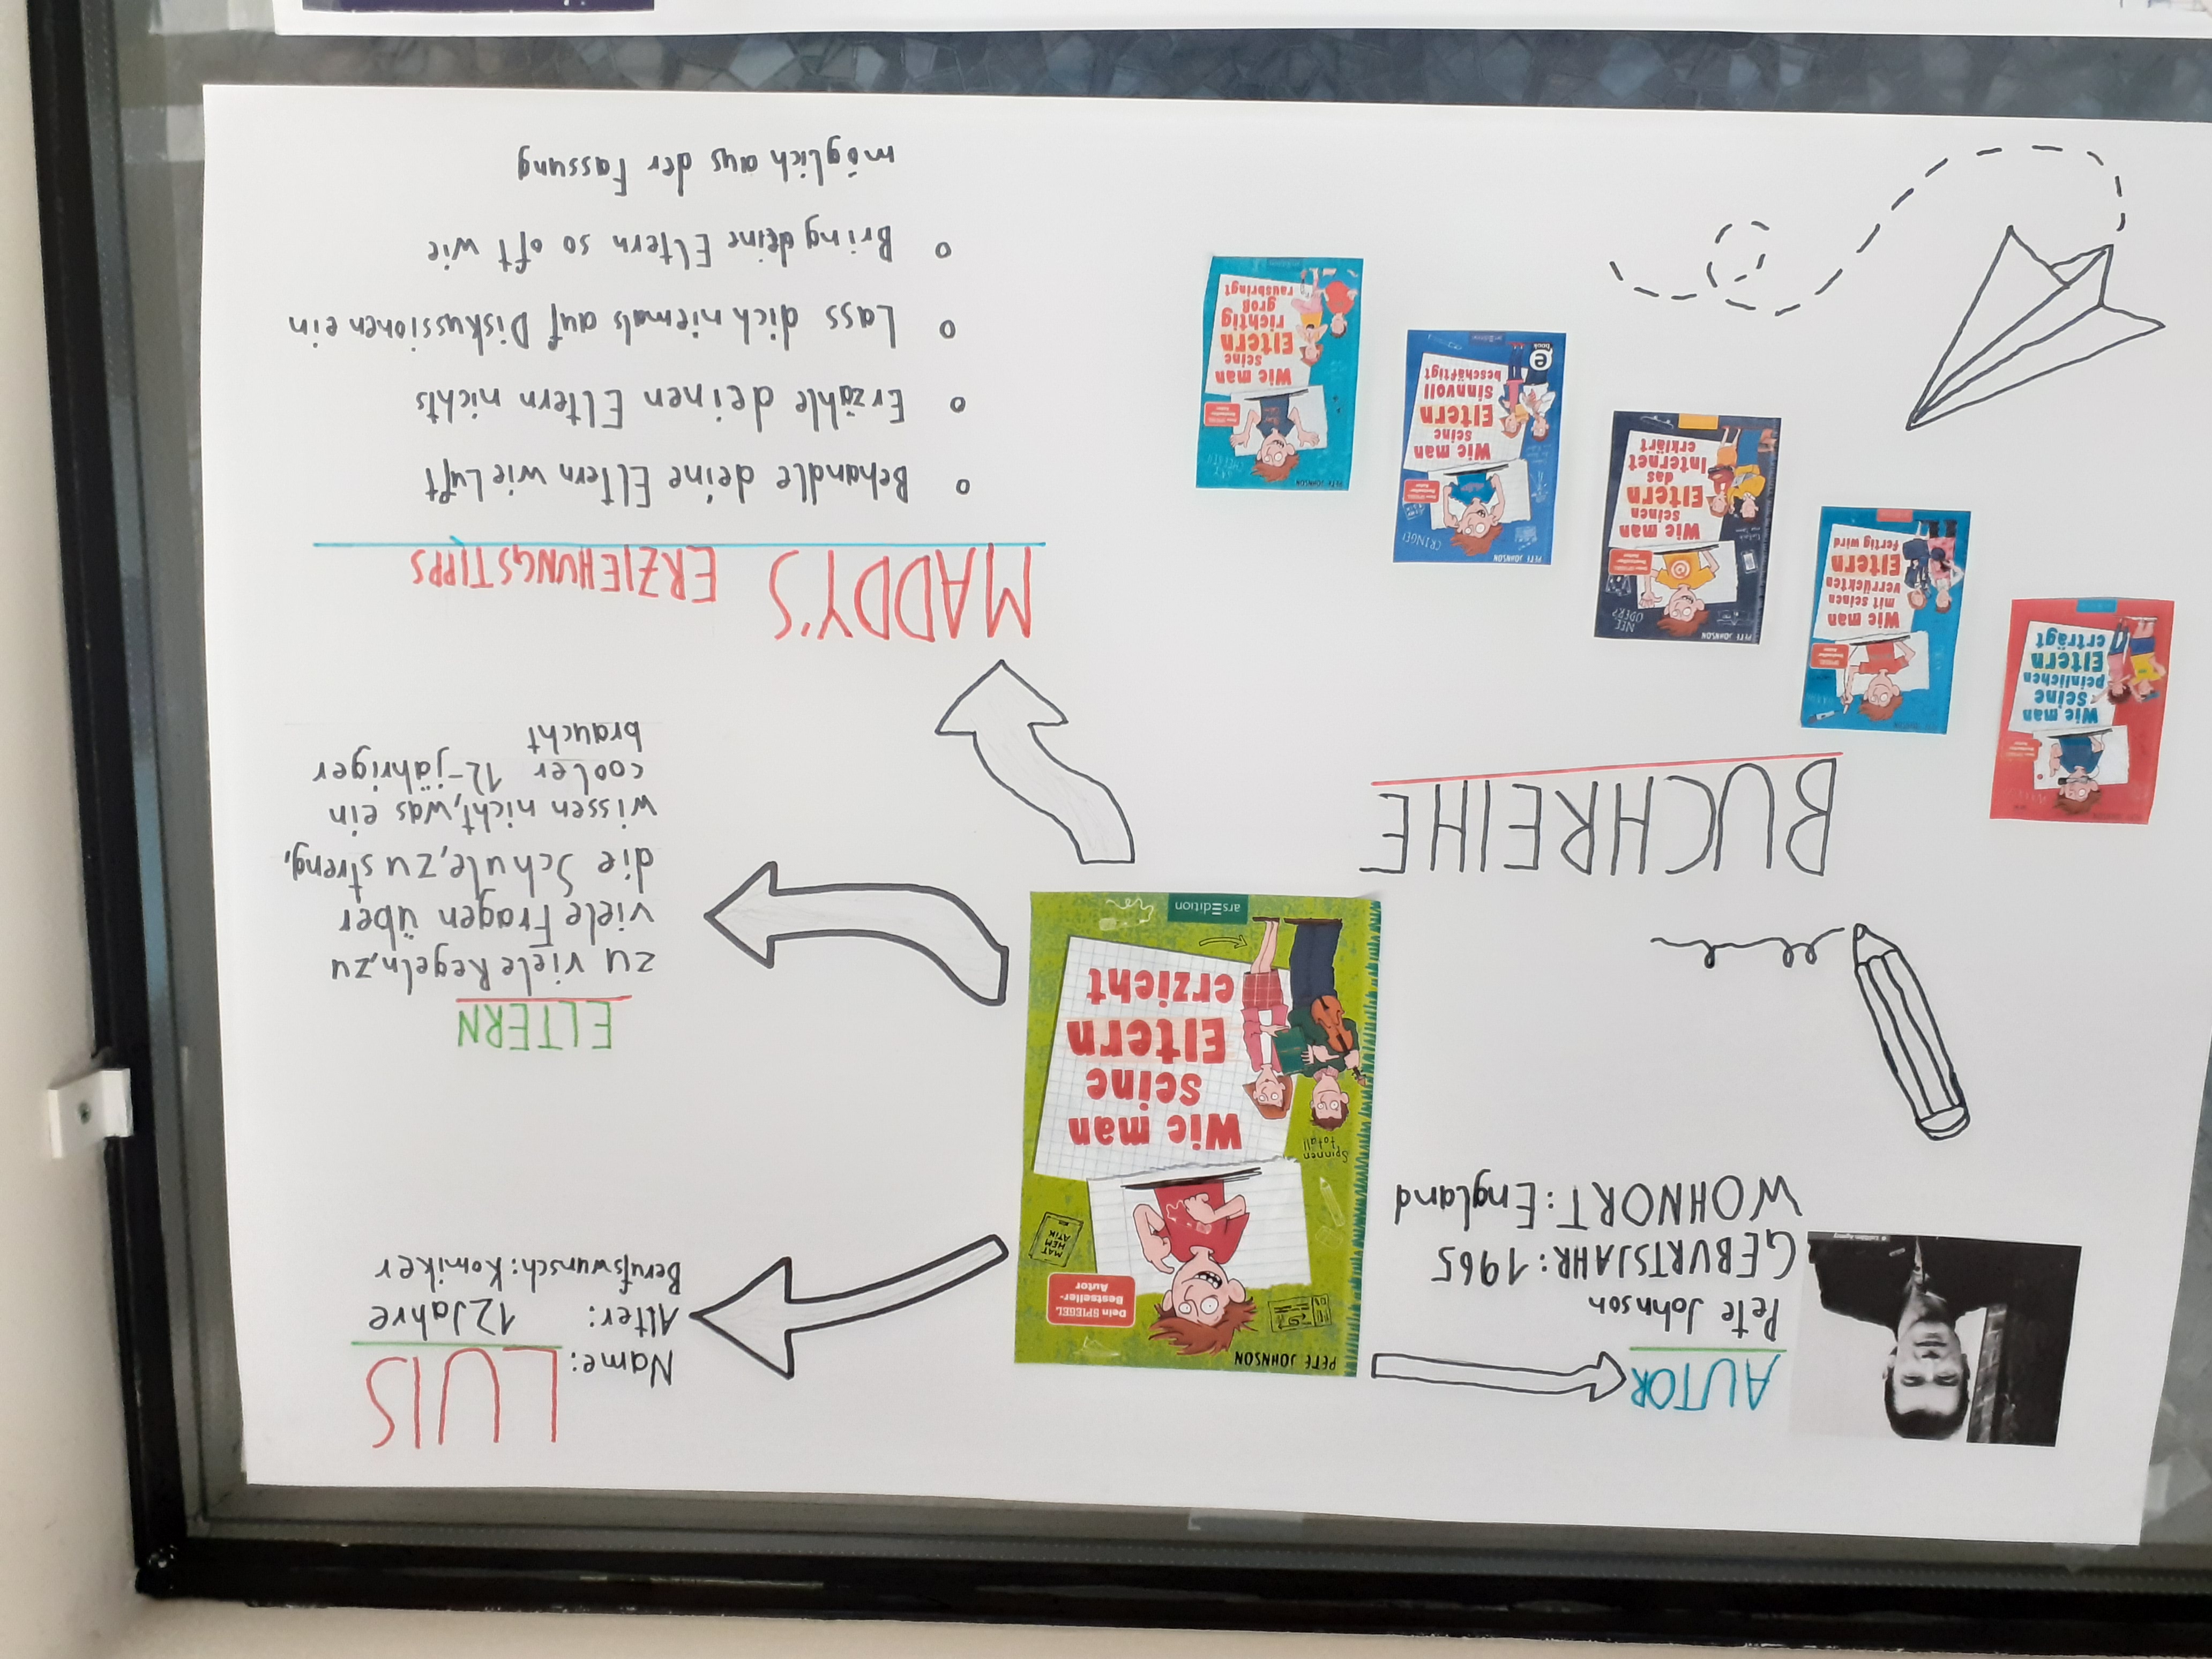 AUTOR
Pete Johnson
GEBURTSJAHR: 1965
WOHNORT: England
PETE JOHNSON
Dein SPIEGEL
Bestseller-
Autor
MAT
HEM
ATIK
Spinnen
total!
Wie man
seine
Eltern
erzieht
arsEdition
Name: LUIS
Alter: 12 Jahre
Berufswunsch: Komiker
ELTERN
zu viele Regeln, zu
viele Fragen über
die Schule, zu streng,
wissen nicht, was ein
cooler 12-jähriger
braucht
BUCHREIHE
Wie man
seine
peinlichen
Eltern
erträgt
Wie man
mit seinen
verrückten
Eltern
fertig wird
PETE JOHNSON
NEE
ODER?
Wie man
seinen
Eltern
das
Internet
erklärt
PETE JOHNSON
CRINGE!
Wie man
seine
Eltern
sinnvoll
beschäftigt
e
book
PETE JOHNSON
Wie man
seine
Eltern
richtig
groß
rausbringt
MADDY'S ERZIEHUNGSTIPPS
o Behandle deine Eltern wie Luft
o Erzähle deinen Eltern nichts
o Lass dich niemals auf Diskussionen ein
o Bring deine Eltern so oft wie
möglich aus der Fassung